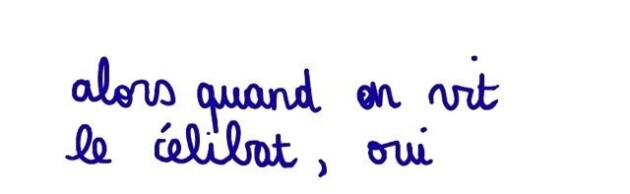 alors quand on vit
le célibat, oui